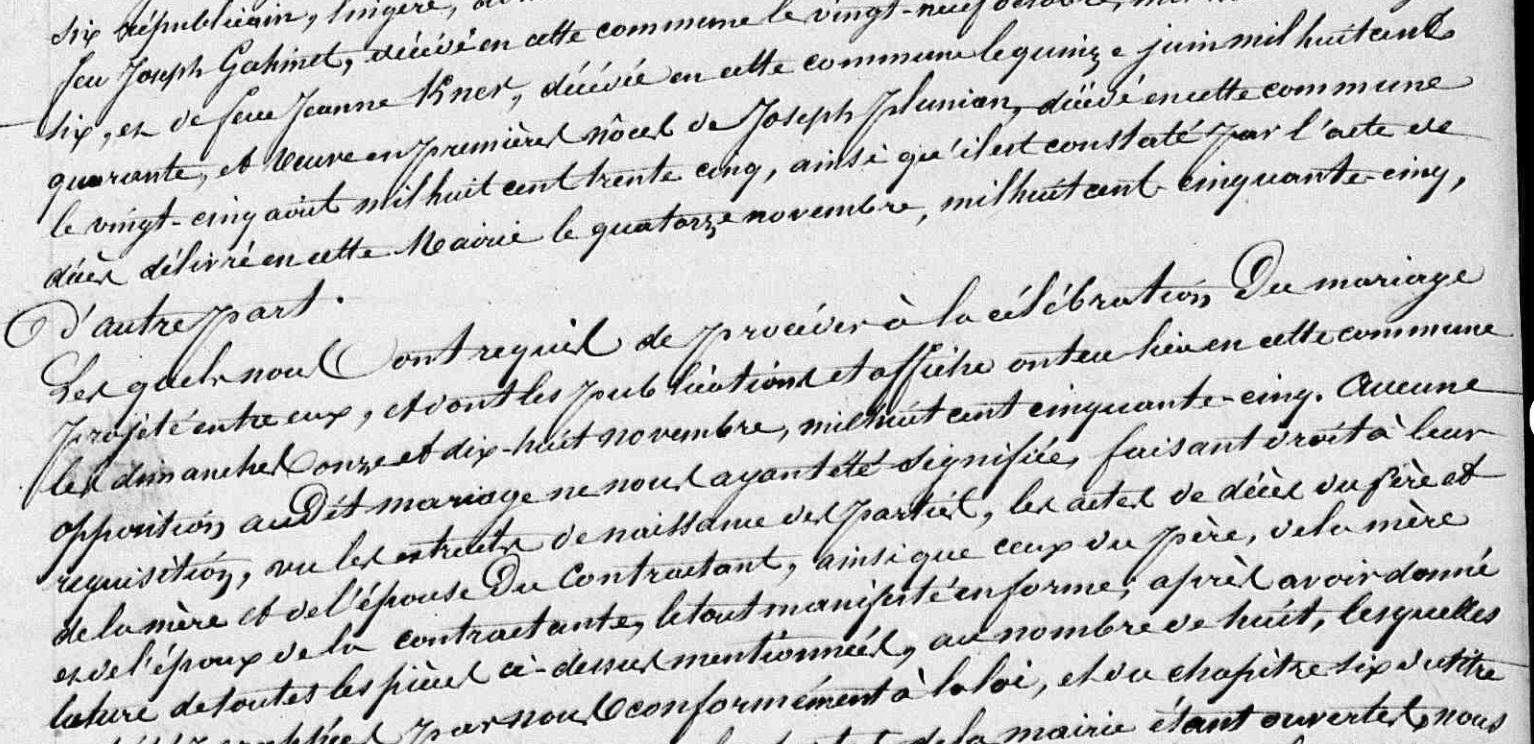 six républicain, lingère,
feu Joseph Gahinet, décédé en cette commune le vingt-neuf octobre, mil
six, et de feue Jeanne Kner, décédée en cette commune le quinze juin mil huit cent
quarante, et veuve en premières nôces de Joseph Plunian, décédé en cette commune
le vingt-cinq août mil huit cent trente cinq, ainsi qu'il est constaté par l'acte de
décès délivré en cette Mairie le quatorze novembre, mil huit cent cinquante-cinq,
D'autre part.
Les quels nous ont requis de procéder à la célébration Du mariage
projété entre eux, et dont les publications et affiche ont eu lieu en cette commune
les dimanches onze et dix-huit novembre, mil huit cent cinquante-cinq. Aucune
opposition au Dit mariage ne nous ayant été signifiée, faisant droit à leur
requisition, vu les extraits de naissance des parties, les actes de décès du père et
de la mère et de l'épouse Du Contractant, ainsi que ceux du père, de la mère
et de l'époux de la contractante, le tout manifesté en forme; après avoir donné
lecture de toutes les pièces ci-dessus mentionnées, au nombre de huit, lesquelles
par nous conformément à la loi, et du chapître six du titre
de la mairie étant ouvertes, nous